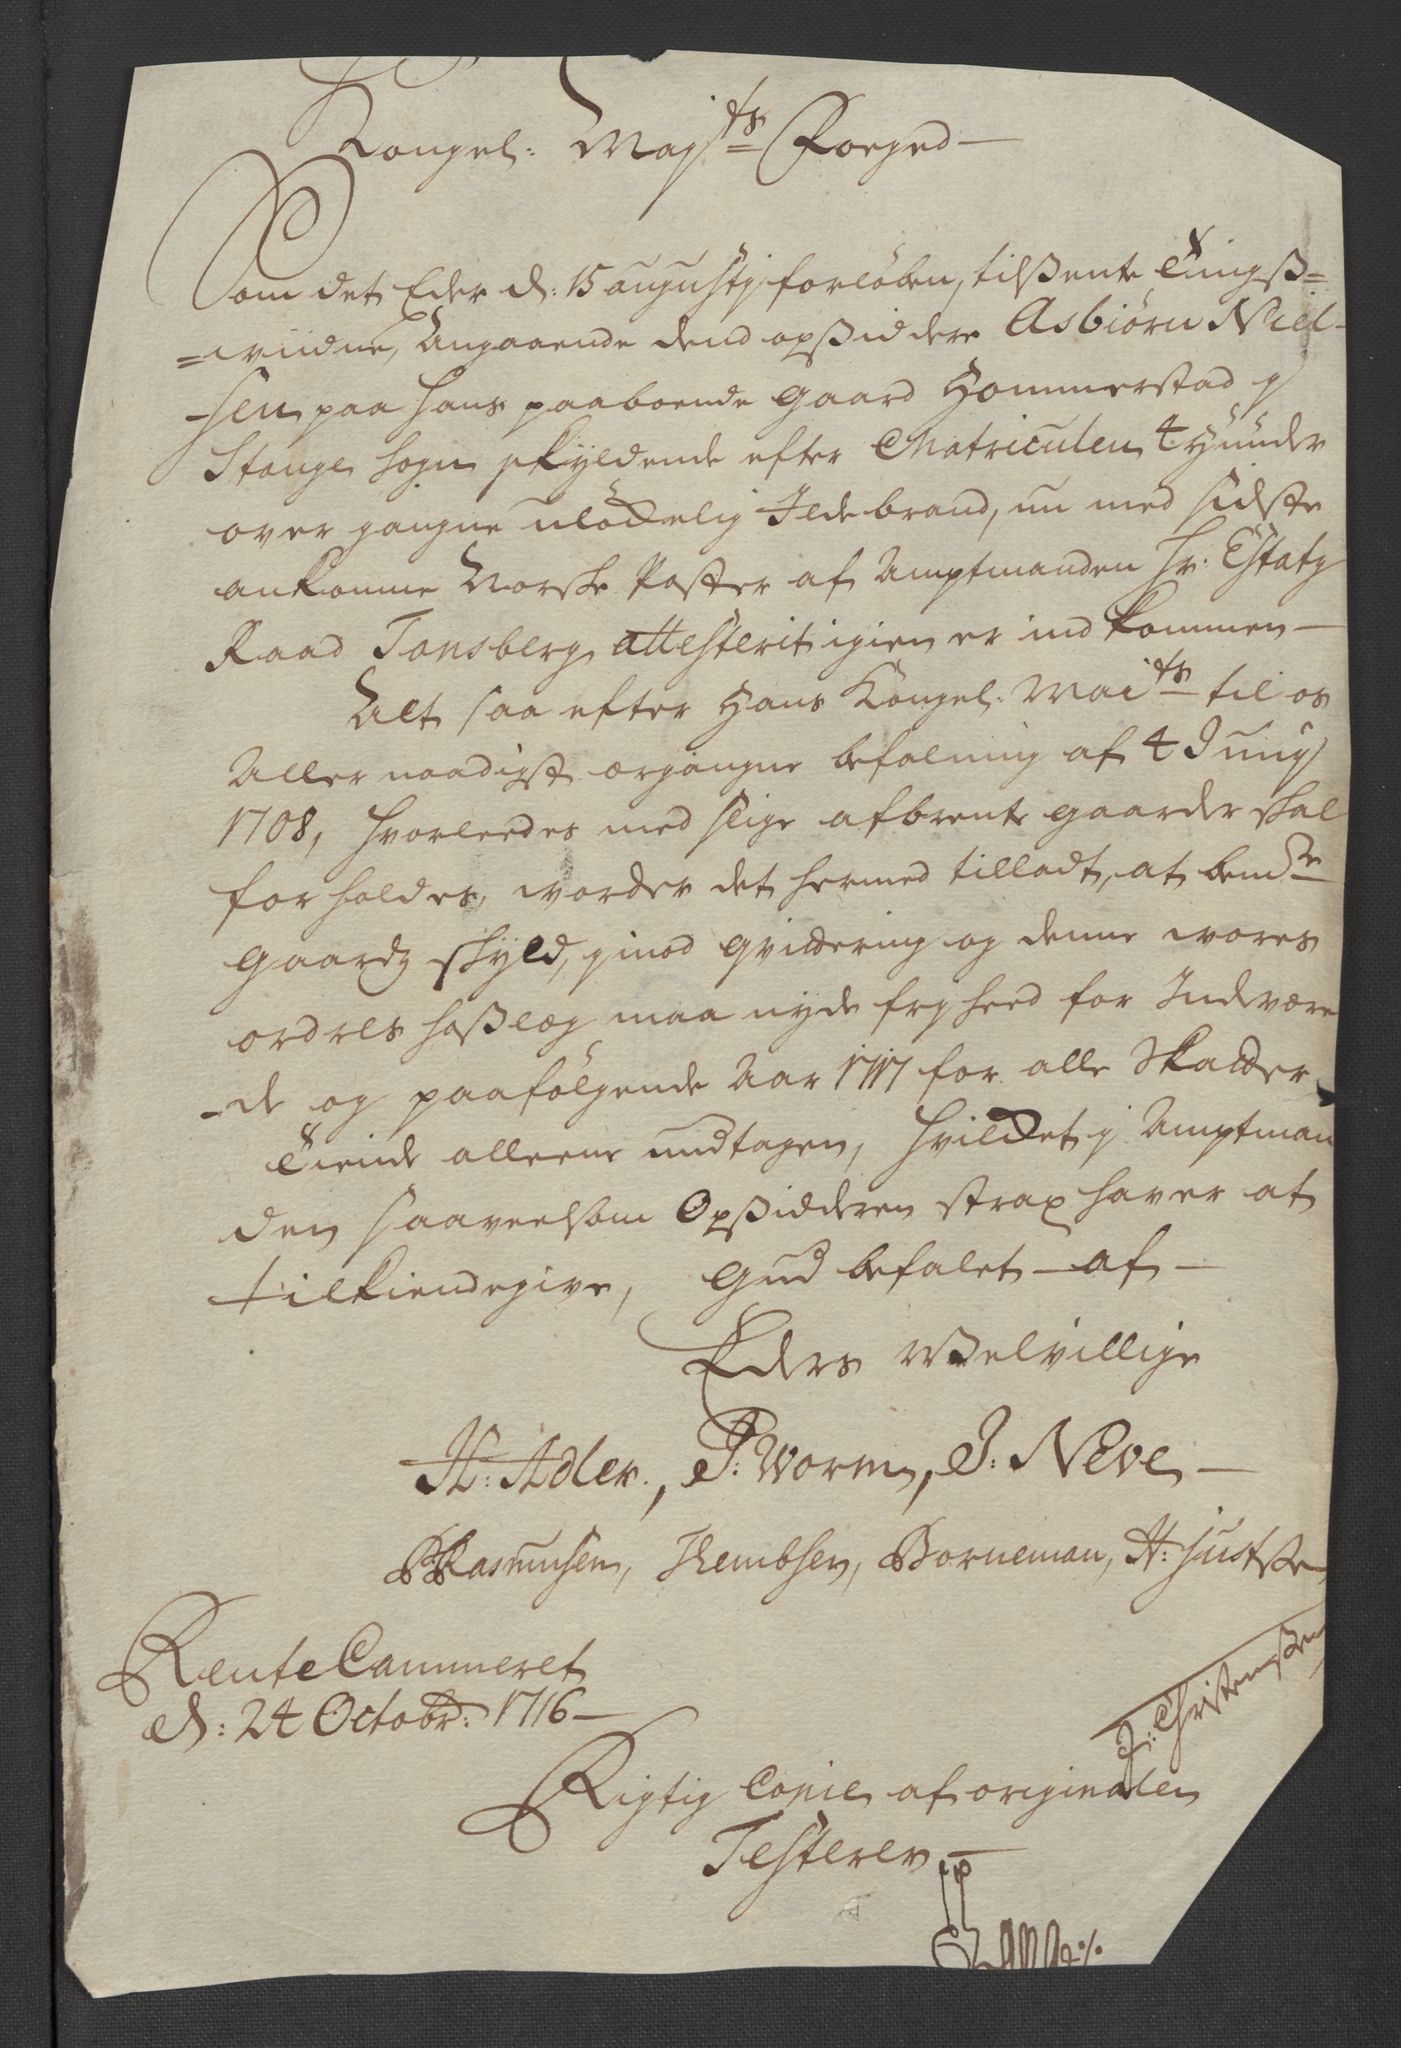 Kongel: Maj:ts Foeged
Som det Eder d: 15 augustj forløben, tilsente Tingß=
=wiidne, Angaaende dend opßiddere Asbiørn Niel-
-sen paa hans paaboende gaard Hommerstad j
Stange Sogn skyldende efter Matriculen 4 Hunder
over gangne uløckelig Ildebrand, nu med sidste
ankomne Norske Poster af Amptmanden Hr: Etatz
Raad Tonsberg attesterit igien er ind kommen
Alt saa efter Hans Kongel: Mai:ts til os
Aller naadigst ergangne befalning af 4 Junij
1708, hvorleedes med slige afbrente gaarder skal
forholdes, worder det hermed tilladt, at bem:te
gaardz skyld, imod qvittering og denne wores
ordres hoßlæg maa nyde frjheed for Indvære
-de og paafølgende Aar 1717 for alle Skatter
Tiende alleene undtagen, hvilket j Amptman
den saaveelsom Opsidderen strax haver at
tilkiendegive, Gud befalet af
Eders Welvillige
H: Adler, P: Worm, J: Neve
B Rasmusen, Rembsen, Borneman, H: Justsen
J: Christensen
Rente Cammeret
d: 24 Octobr: 1716
Rigtig Copie af originalen
Testerer